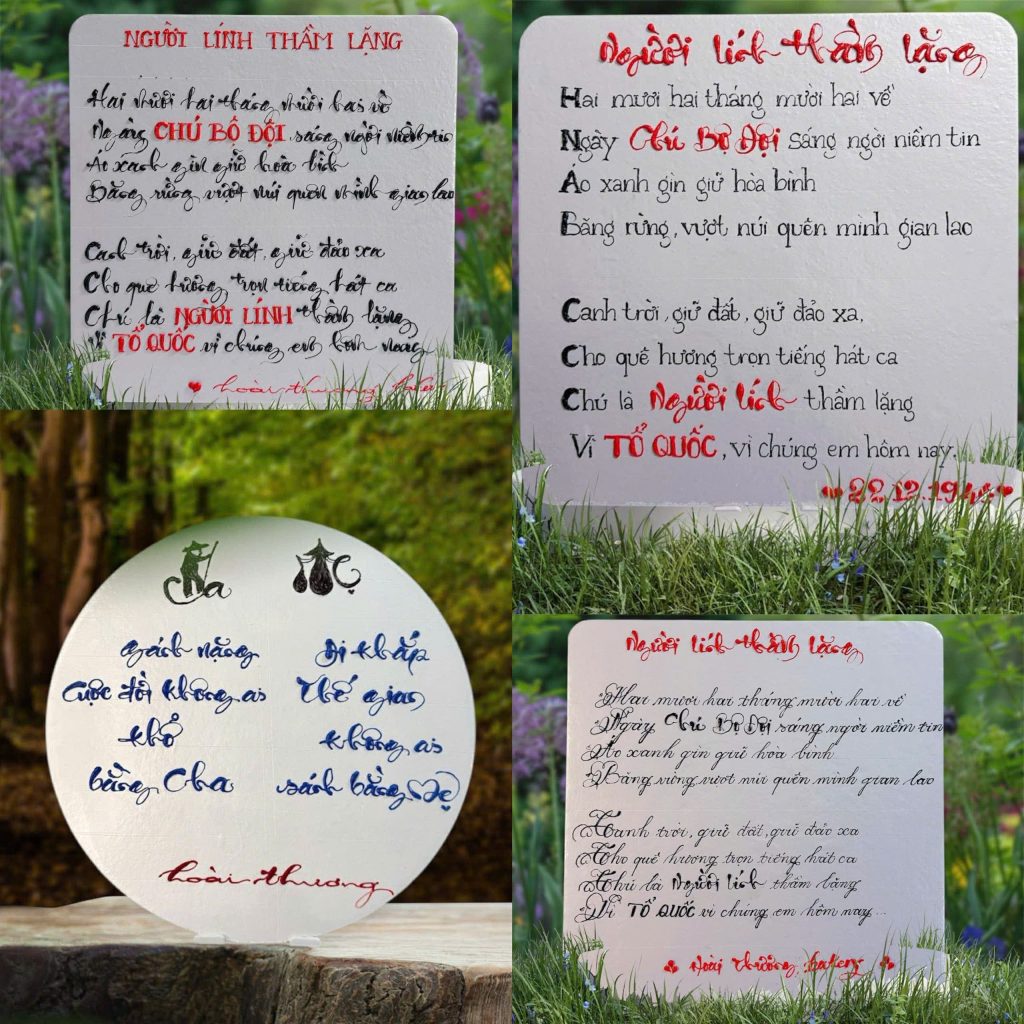 NGƯỜI LÍNH THẦM LẶNG
Hai mươi hai tháng mười hai về
Ngày CHÚ BỘ ĐỘI sáng ngời niềm tin
Áo xanh gìn giữ hòa bình
Băng rừng vượt núi quên mình gian lao
Canh trời, giữ đất, giữ đảo xa
Cho quê hương trọn tiếng hát ca
Chú là NGƯỜI LÍNH thầm lặng
Vì TỔ QUỐC vì chúng em hôm nay
hoài thương bakery
Người lính thầm lặng
Hai mươi hai tháng mười hai về
Ngày Chú Bộ Đội sáng ngời niềm tin
Áo xanh gìn giữ hòa bình
Băng rừng, vượt núi quên mình gian lao
Canh trời, giữ đất, giữ đảo xa,
Cho quê hương trọn tiếng hát ca
Chú là Người lính thầm lặng
Vì TỔ QUỐC, vì chúng em hôm nay.
22.12.1944
Cha Mẹ
gánh nặng
Cuộc đời không ai
khổ
bằng Cha
Đi khắp
Thế gian
không ai
sánh bằng Mẹ
hoài thương
Người lính thầm lặng
Hai mươi hai tháng mười hai về
Ngày Chú Bộ Đội sáng ngời niềm tin
Áo xanh gìn giữ hòa bình
Băng rừng vượt núi quên mình gian lao
Canh trời, giữ đất, giữ đảo xa
Cho quê hương trọn tiếng hát ca
Chú là Người lính thầm lặng
Vì TỔ QUỐC vì chúng em hôm nay...
Hoài Thương bakery